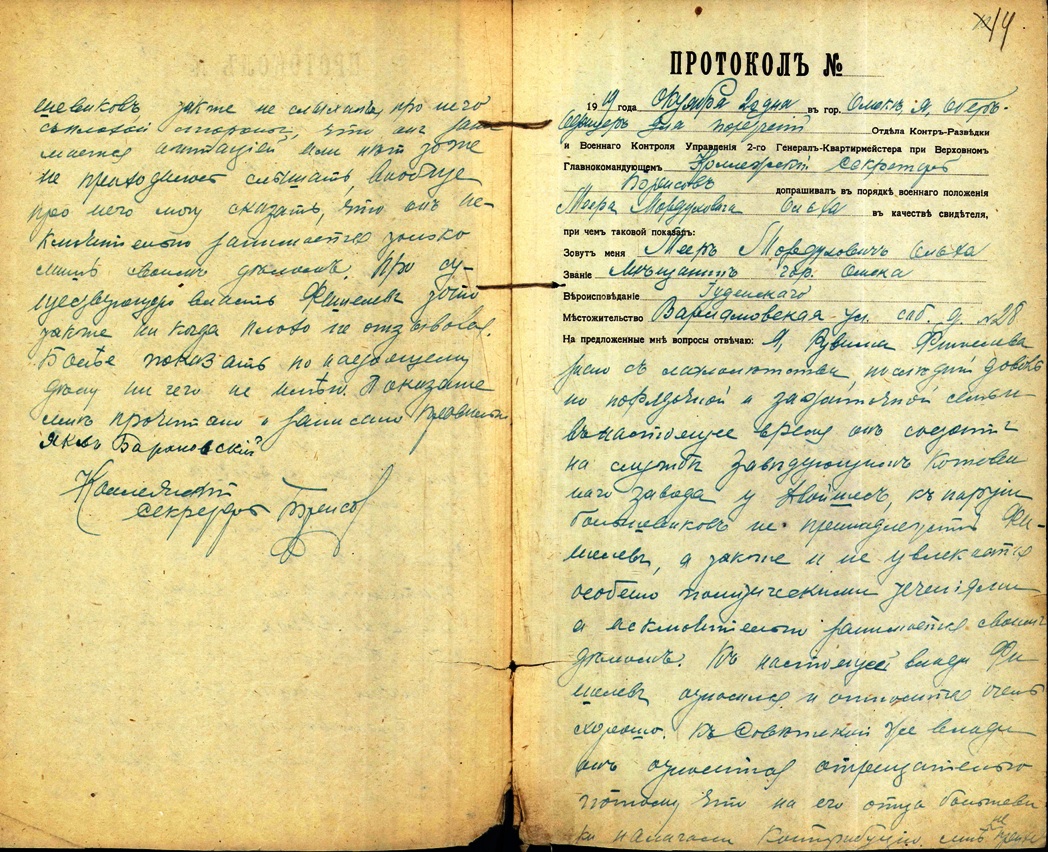 шевиковъ также не слыхалъ, про него
съ плохой стороны, что онъ зани
мается агитаціей или нѣтъ тоже
не приходилось слышать, вообще
про него могу сказать, что онъ ис-
ключительно занимается только
лишь своимъ дѣломъ. Про су-
ществующую власть Фишелевъ
также никогда плохо не отзывался.
Болѣе показать по настоящему
дѣлу ни чего не имѣю. Показаніе
мнѣ прочитано и записано правильно
Яковъ Барановскій
Коллежскій
секретарь Борисов
14
ПРОТОКОЛЪ №
1919 года Октября 2 дня въ гор. Омскѣ, я, Оберъ-
Офицеръ для порученій Отдѣла Контръ-Развѣдки
и Военнаго Контроля Управленія 2-го Генералъ-Квартирмейстера при Верховномъ
Главнокомандующемъ Коллежскій секретарь
Борисовъ допрашивалъ въ порядкѣ военнаго положенія
Меера Мордуховича въ качествѣ свидѣтеля,
при чемъ таковой показалъ:
Зовутъ меня Мееръ Мордуховичъ
Званіе Мѣщанинъ гор. Омска
Вѣроисповѣданіе Іудейскаго
Мѣстожительство Варламовская ул. соб. д. №28
На предложенные мнѣ вопросы отвѣчаю: Я, Рувима Фишелева
знаю съ малолѣтства, происходитъ доволь
но порядочной и зажиточной семьи
въ настоящее время онъ состоитъ
на службѣ Завѣдующимъ кожевен
наго завода у къ партіи
большевиковъ не принадлежитъ Фи-
шелевъ, а также и не увлекается
особенно политическими теченіями
а исключительно занимается своимъ
дѣломъ. Къ настоящей власти Фи
шелевъ относился и относится очень
хорошо. Къ Совѣтской же власти
онъ относится отрицательно
потому что на его отца большеви
ки налагали контрибуцію